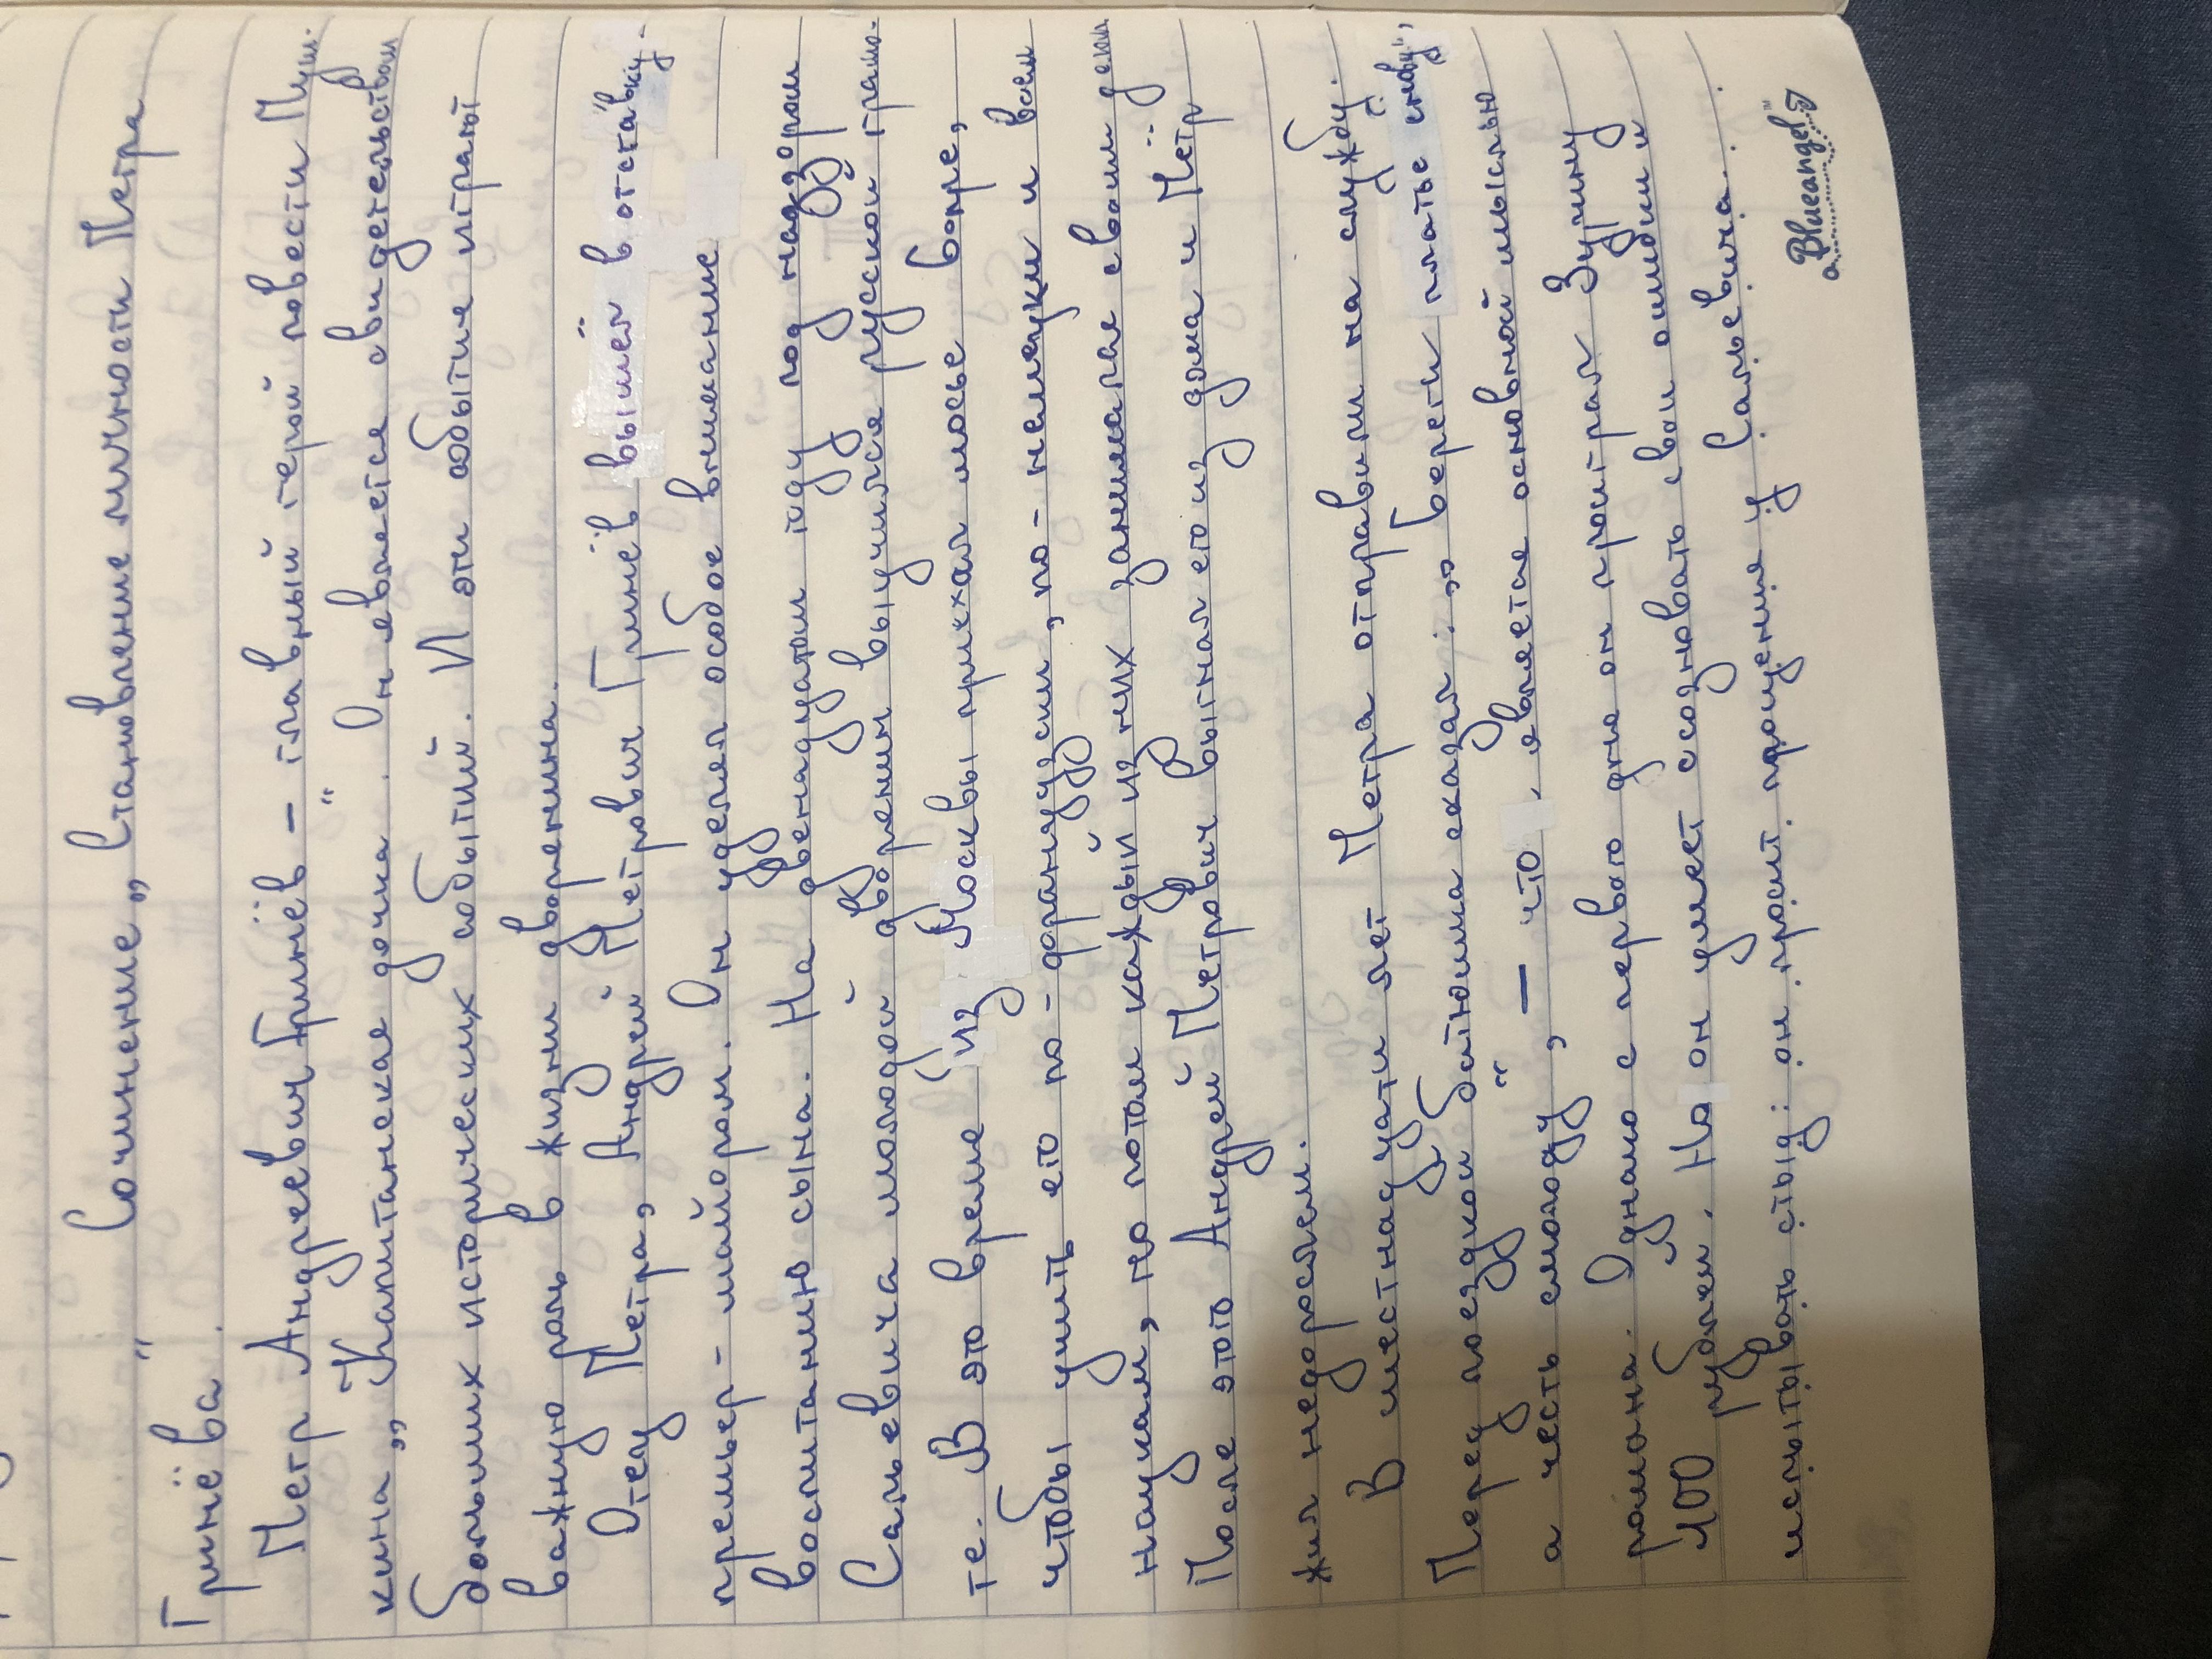 Сочинение „Становление личности Петра
Гринёва."
Петр Андреевич Гринёв – главный герой повести Пуш-
кина „Капитанская дочка". Он является свидетельством
больших исторических событий. И эти события играют
важную роль в жизни дворянина.
Отец Петра, Андрей Петрович Гринёв вышел в отставку
премьер-майором. Он уделял особое внимание
воспитанию сына. На двенадцатом году под надзором
Савельевича молодой дворянин выучился русской грамо-
те. В это время из Москвы приехал мосье Бопре,
чтобы учить его по-французски, по-немецки и всем
наукам, но потом каждый из них занимался своим делом
После этого Андрей Петрович выгнал его из дома и Пётр
жил недорослем.
В шестнадцати лет Петра отправили на службу.
Перед поездкой батюшка сказал: „Береги платье снову,
а честь смолоду", – что является основной мыслью
романа. Однако с первого дня он проиграл Зурину
100 рублей. Но он умеет осознавать свои ошибки и
испытывать стыд: он просит прощение у Савельевича.
Blueangel